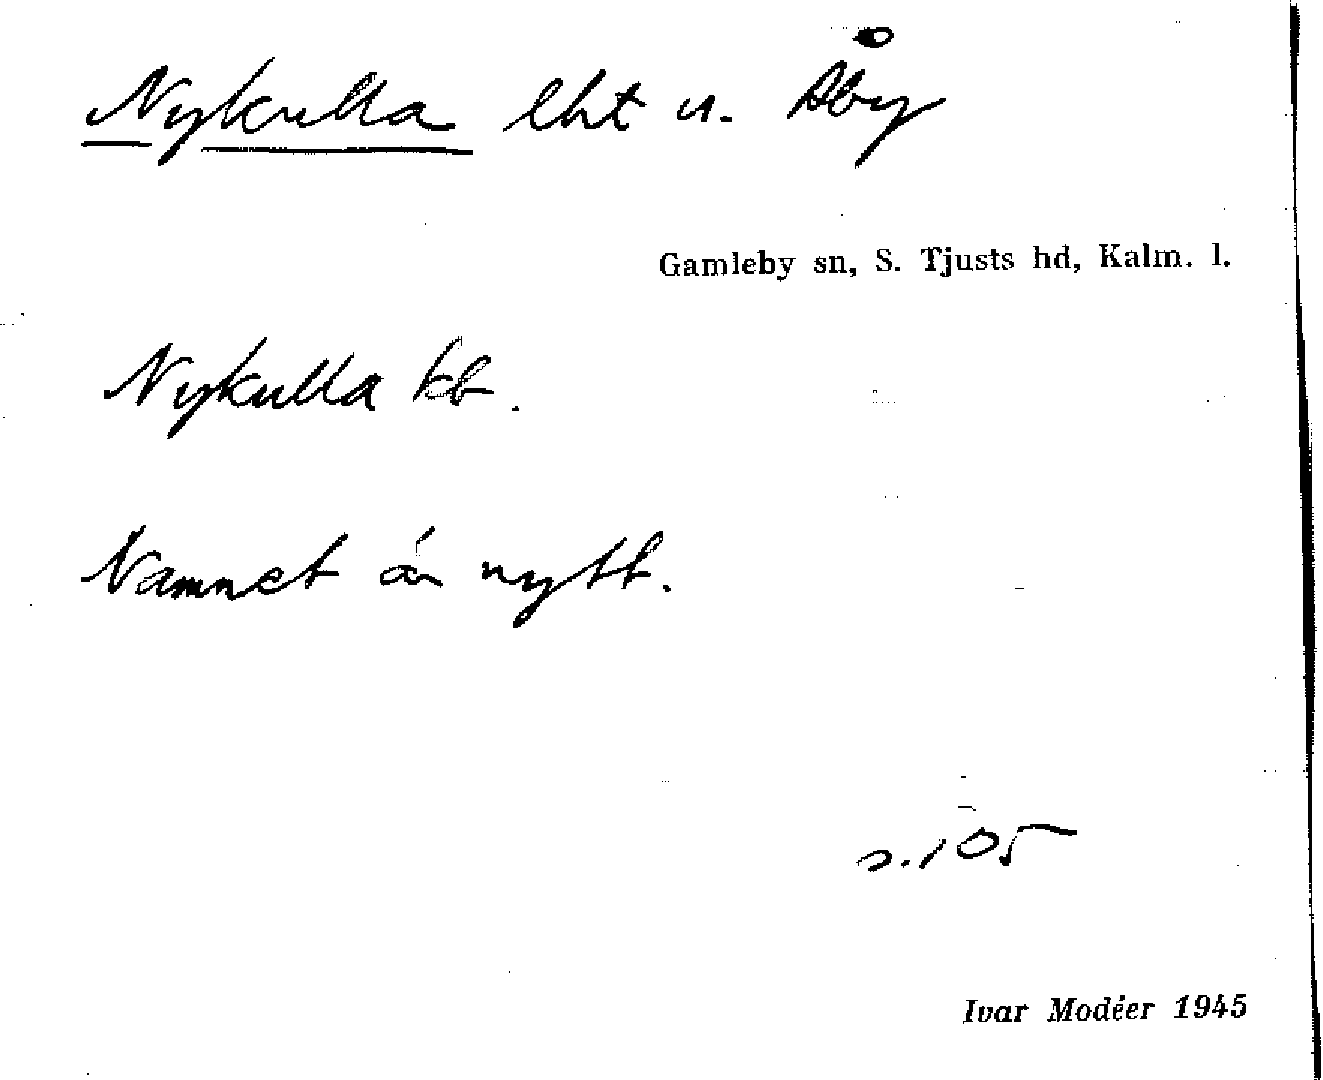 Nykulla lht u. Åby
Gamleby sn, S. Tjusts hd, Kalm. l.
Nykulla kb.
Namnet är nytt.
s. 105
Ivar Modéer 1945